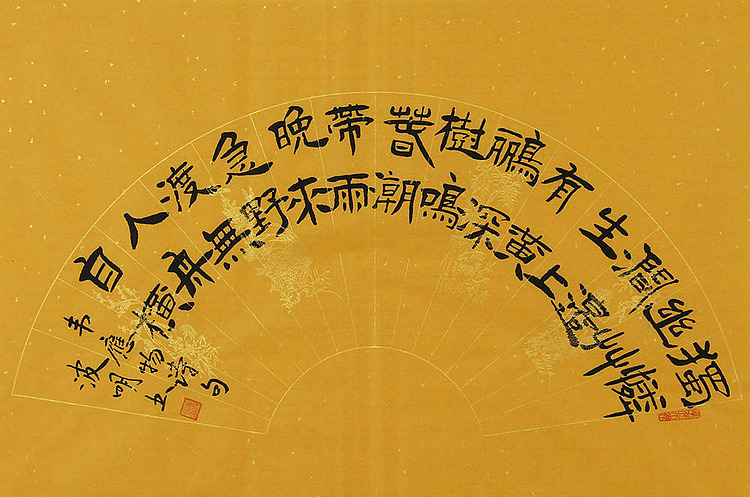 獨憐
幽艸
澗邊
生上
有黄
鸝深
樹鳴
春潮
帶雨
晚來
急野
渡無
人舟
自橫
韦應物詩句
波明书